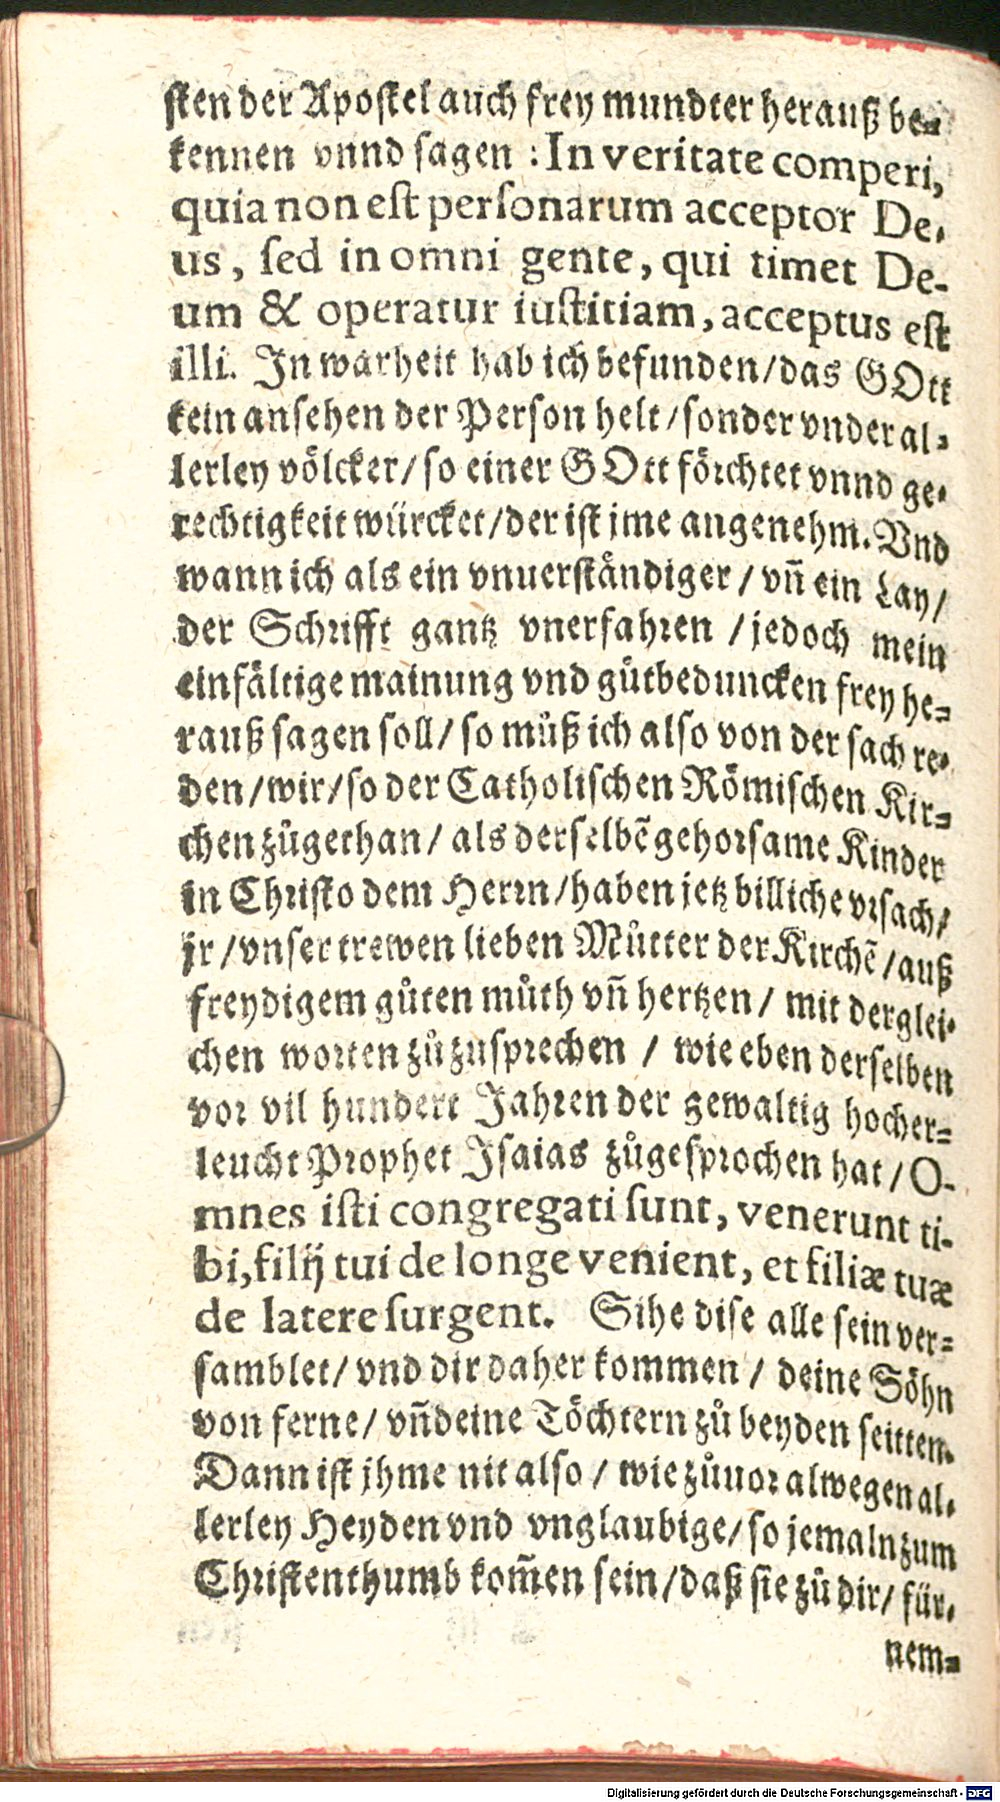 sten der Apostel auch frey mundter herauß be-
kennen vnnd sagen : In veritate comperi,
quia non est personarum acceptor De-
us, sed in omni gente, qui timet De-
um & operatur iustitiam, acceptus est
illi. In warheit hab ich befunden/das GOtt
kein ansehen der Person helt/sonder vnder al-
lerley völcker/so einer GOtt förchtet vnnd ge-
rechtigkeit würcket/der ist jme angenehm. Vnd
wann ich als ein vnuerständiger/vñ ein Lay/
der Schrifft gantz vnerfahren/jedoch mein
einfältige mainung vnd gůtbeduncken frey he-
rauß sagen soll/so můß ich also von der sach re-
den/wir/so der Catholischen Römischen Kir-
chen zůgethan/als derselbẽ gehorsame Kinder
in Christo dem Herrn/haben jetz billiche vrsach/
jr/vnser trewen lieben Můtter der Kirchẽ/auß
freydigem gůten můth vñ hertzen/mit derglei-
chen worten zů zusprechen/wie eben derselben
vor vil hundert Jahren der gewaltig hocher-
leucht Prophet Isaias zůgesprochen hat/O-
mnes isti congregati sunt, venerunt ti-
bi, filij tui de longe venient, et filiæ tuæ
de latere surgent. Sihe dise alle sein ver-
samblet/vnd dir daher kommen/deine Söhn
von ferne/vñ deine Töchtern zů beyden seitten.
Dann ist jhme nit also/wie zůuor alwegen al-
lerley Heyden vnd vnglaubige/so jemaln zum
Christenthumb kom̃en sein/daß sie zů dir/für-
nem-
Digitalisierung gefördert durch die Deutsche Forschungsgemeinschaft - DFG